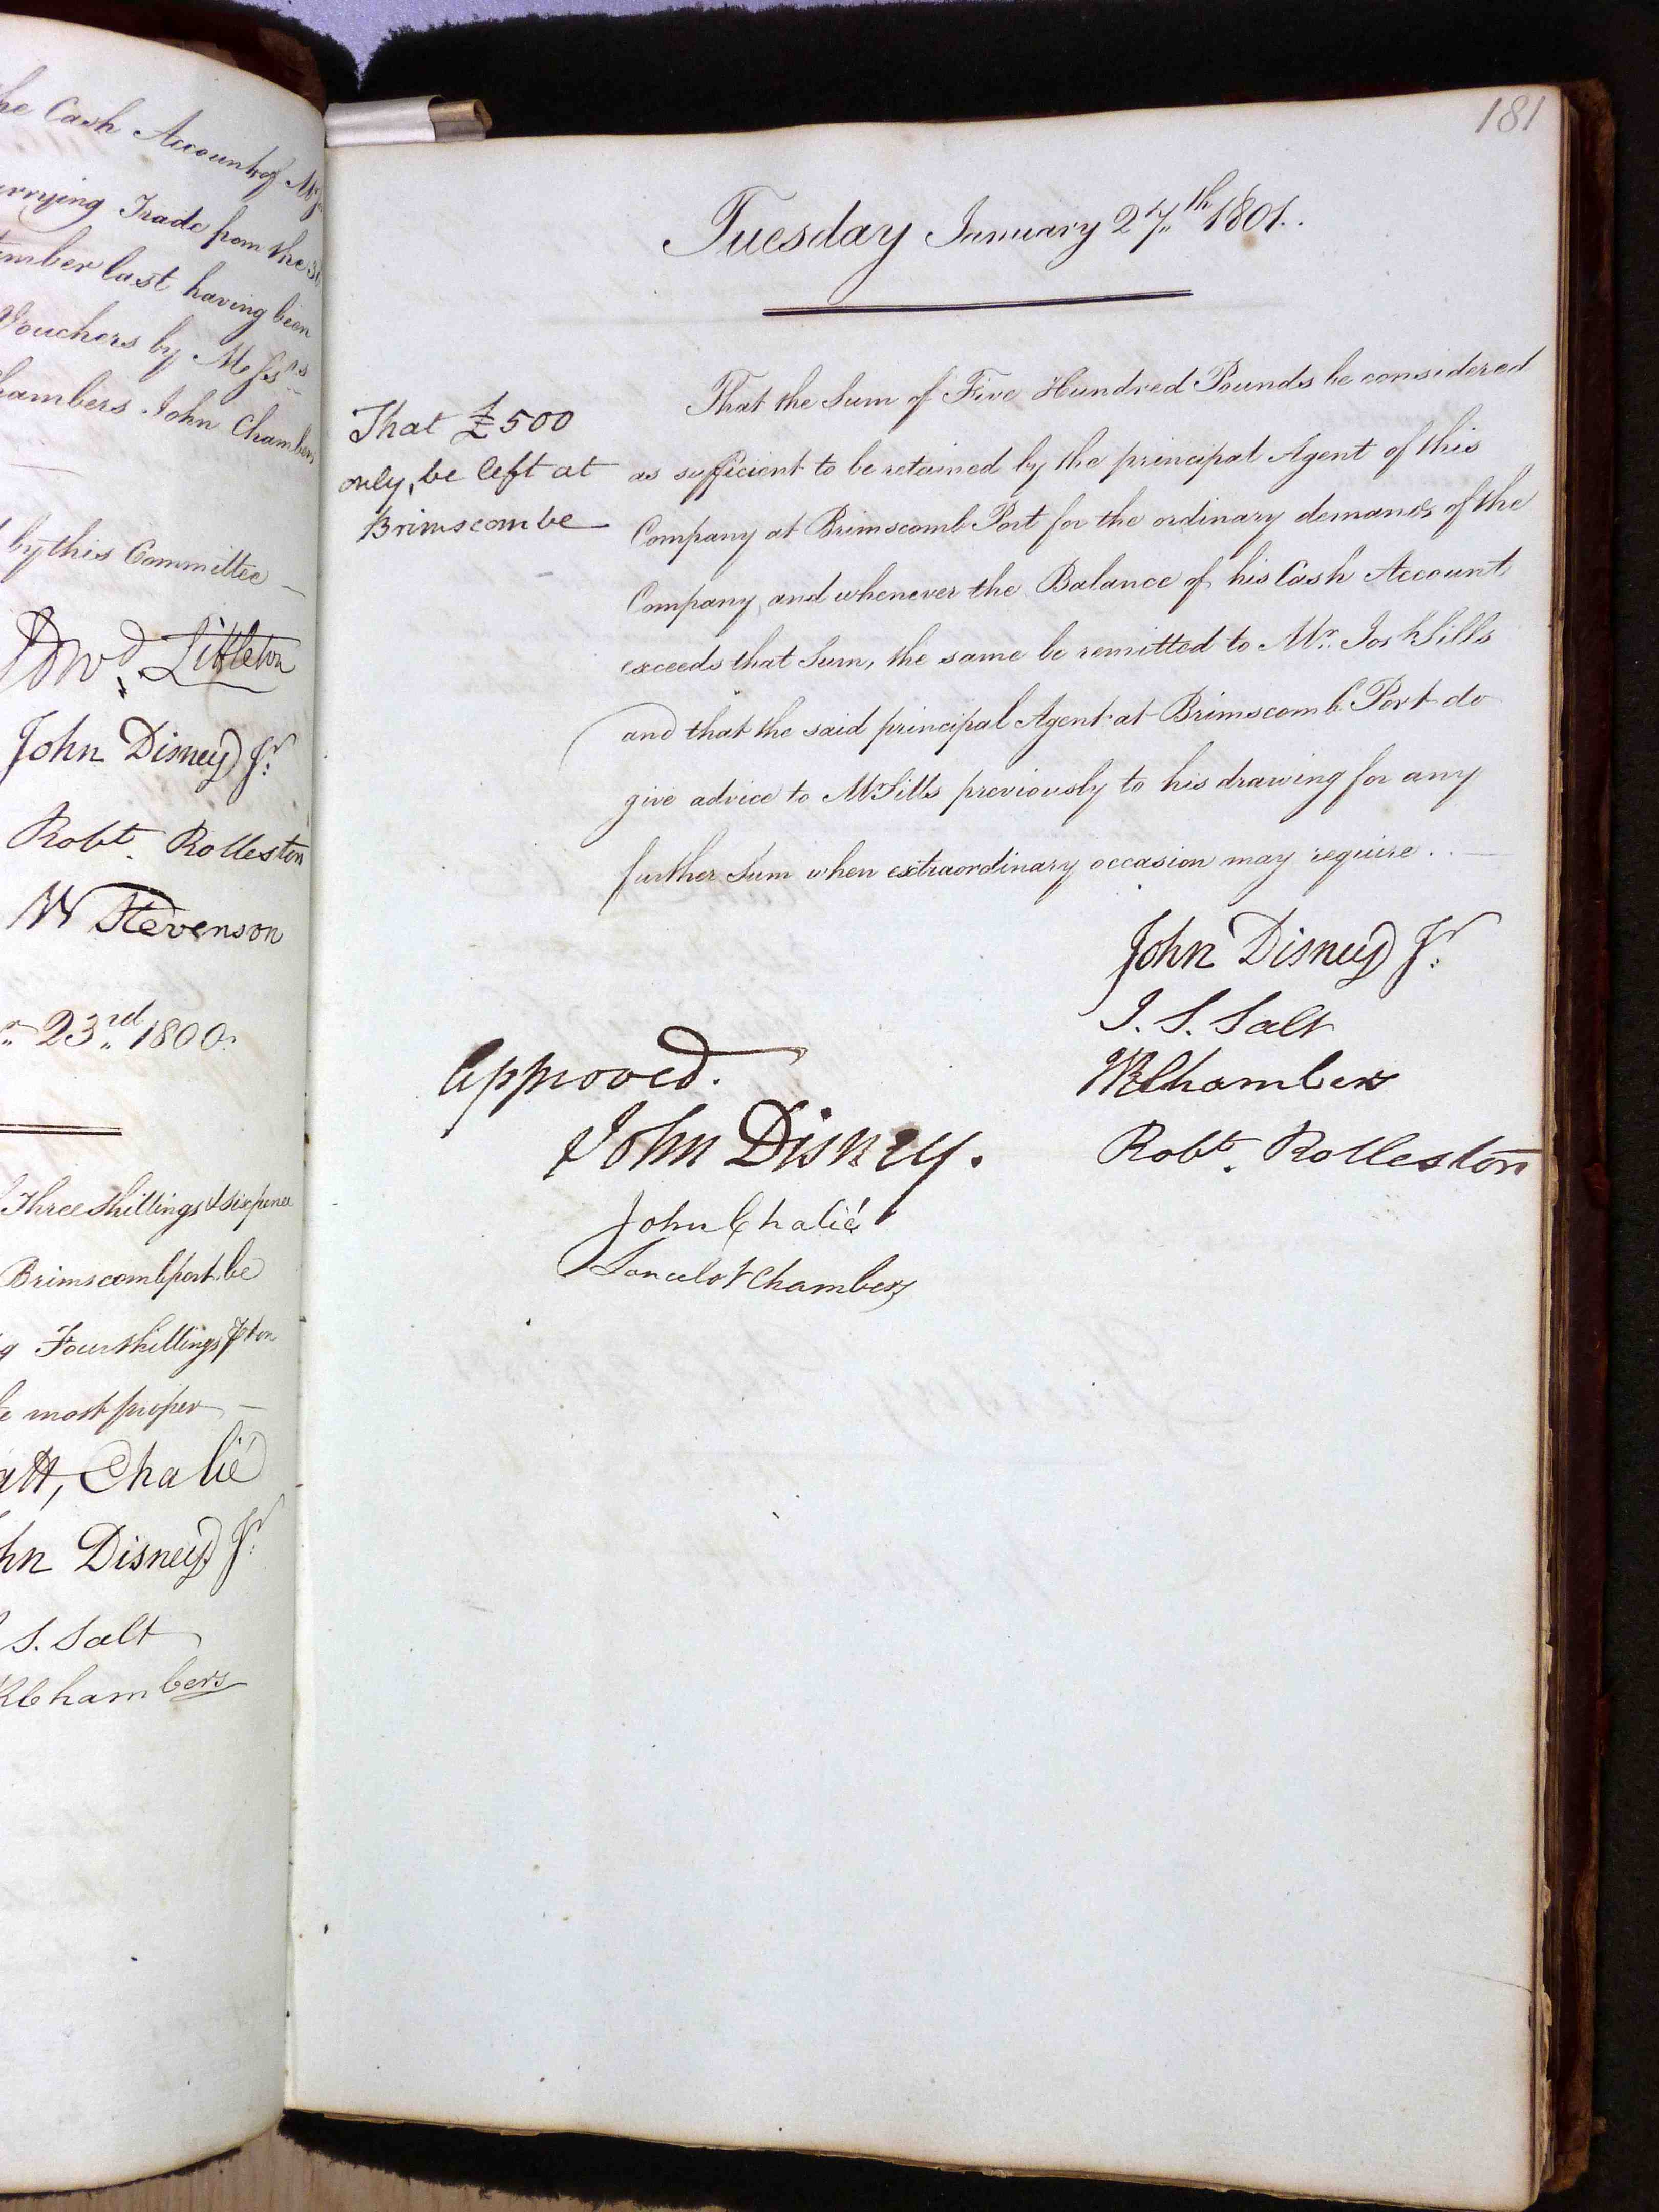 he Cash Account of Mr
rrying Trade from the 30
ember last having been
Vouchers by Messrs
hambers John Chambers
by this Committee
Edwd. Littleton
John Disney Jr.
Robt. Rolleston
W Stevenson
23rd 1800.
Three Shillings & Sixpence
Brimscombport be
g Four Shillings ton
e most proper
att, Chalié
hn Disney Jr.
S. Salt
R Chambers
181
Tuesday January 27th 1801.
That £500
only, be left at
Brimscombe
That the Sum of Five Hundred Pounds be considered
as sufficient to be retained by the principal Agent of this
Company at Brimscomb Port for the ordinary demands of the
Company, and whenever the Balance of his Cash Account
exceeds that Sum, the same be remitted to Mr. Josh Sills
and that the said principal Agent at Brimscomb Port do
give advice to Mr Sills previously to his drawing for any
further Sum when extraordinary occasion may require.
John Disney Jr.
J. S. Salt
WR Chambers
Robt. Rolleston
Approved.
John Disney.
John Chalié
Lancelot Chambers